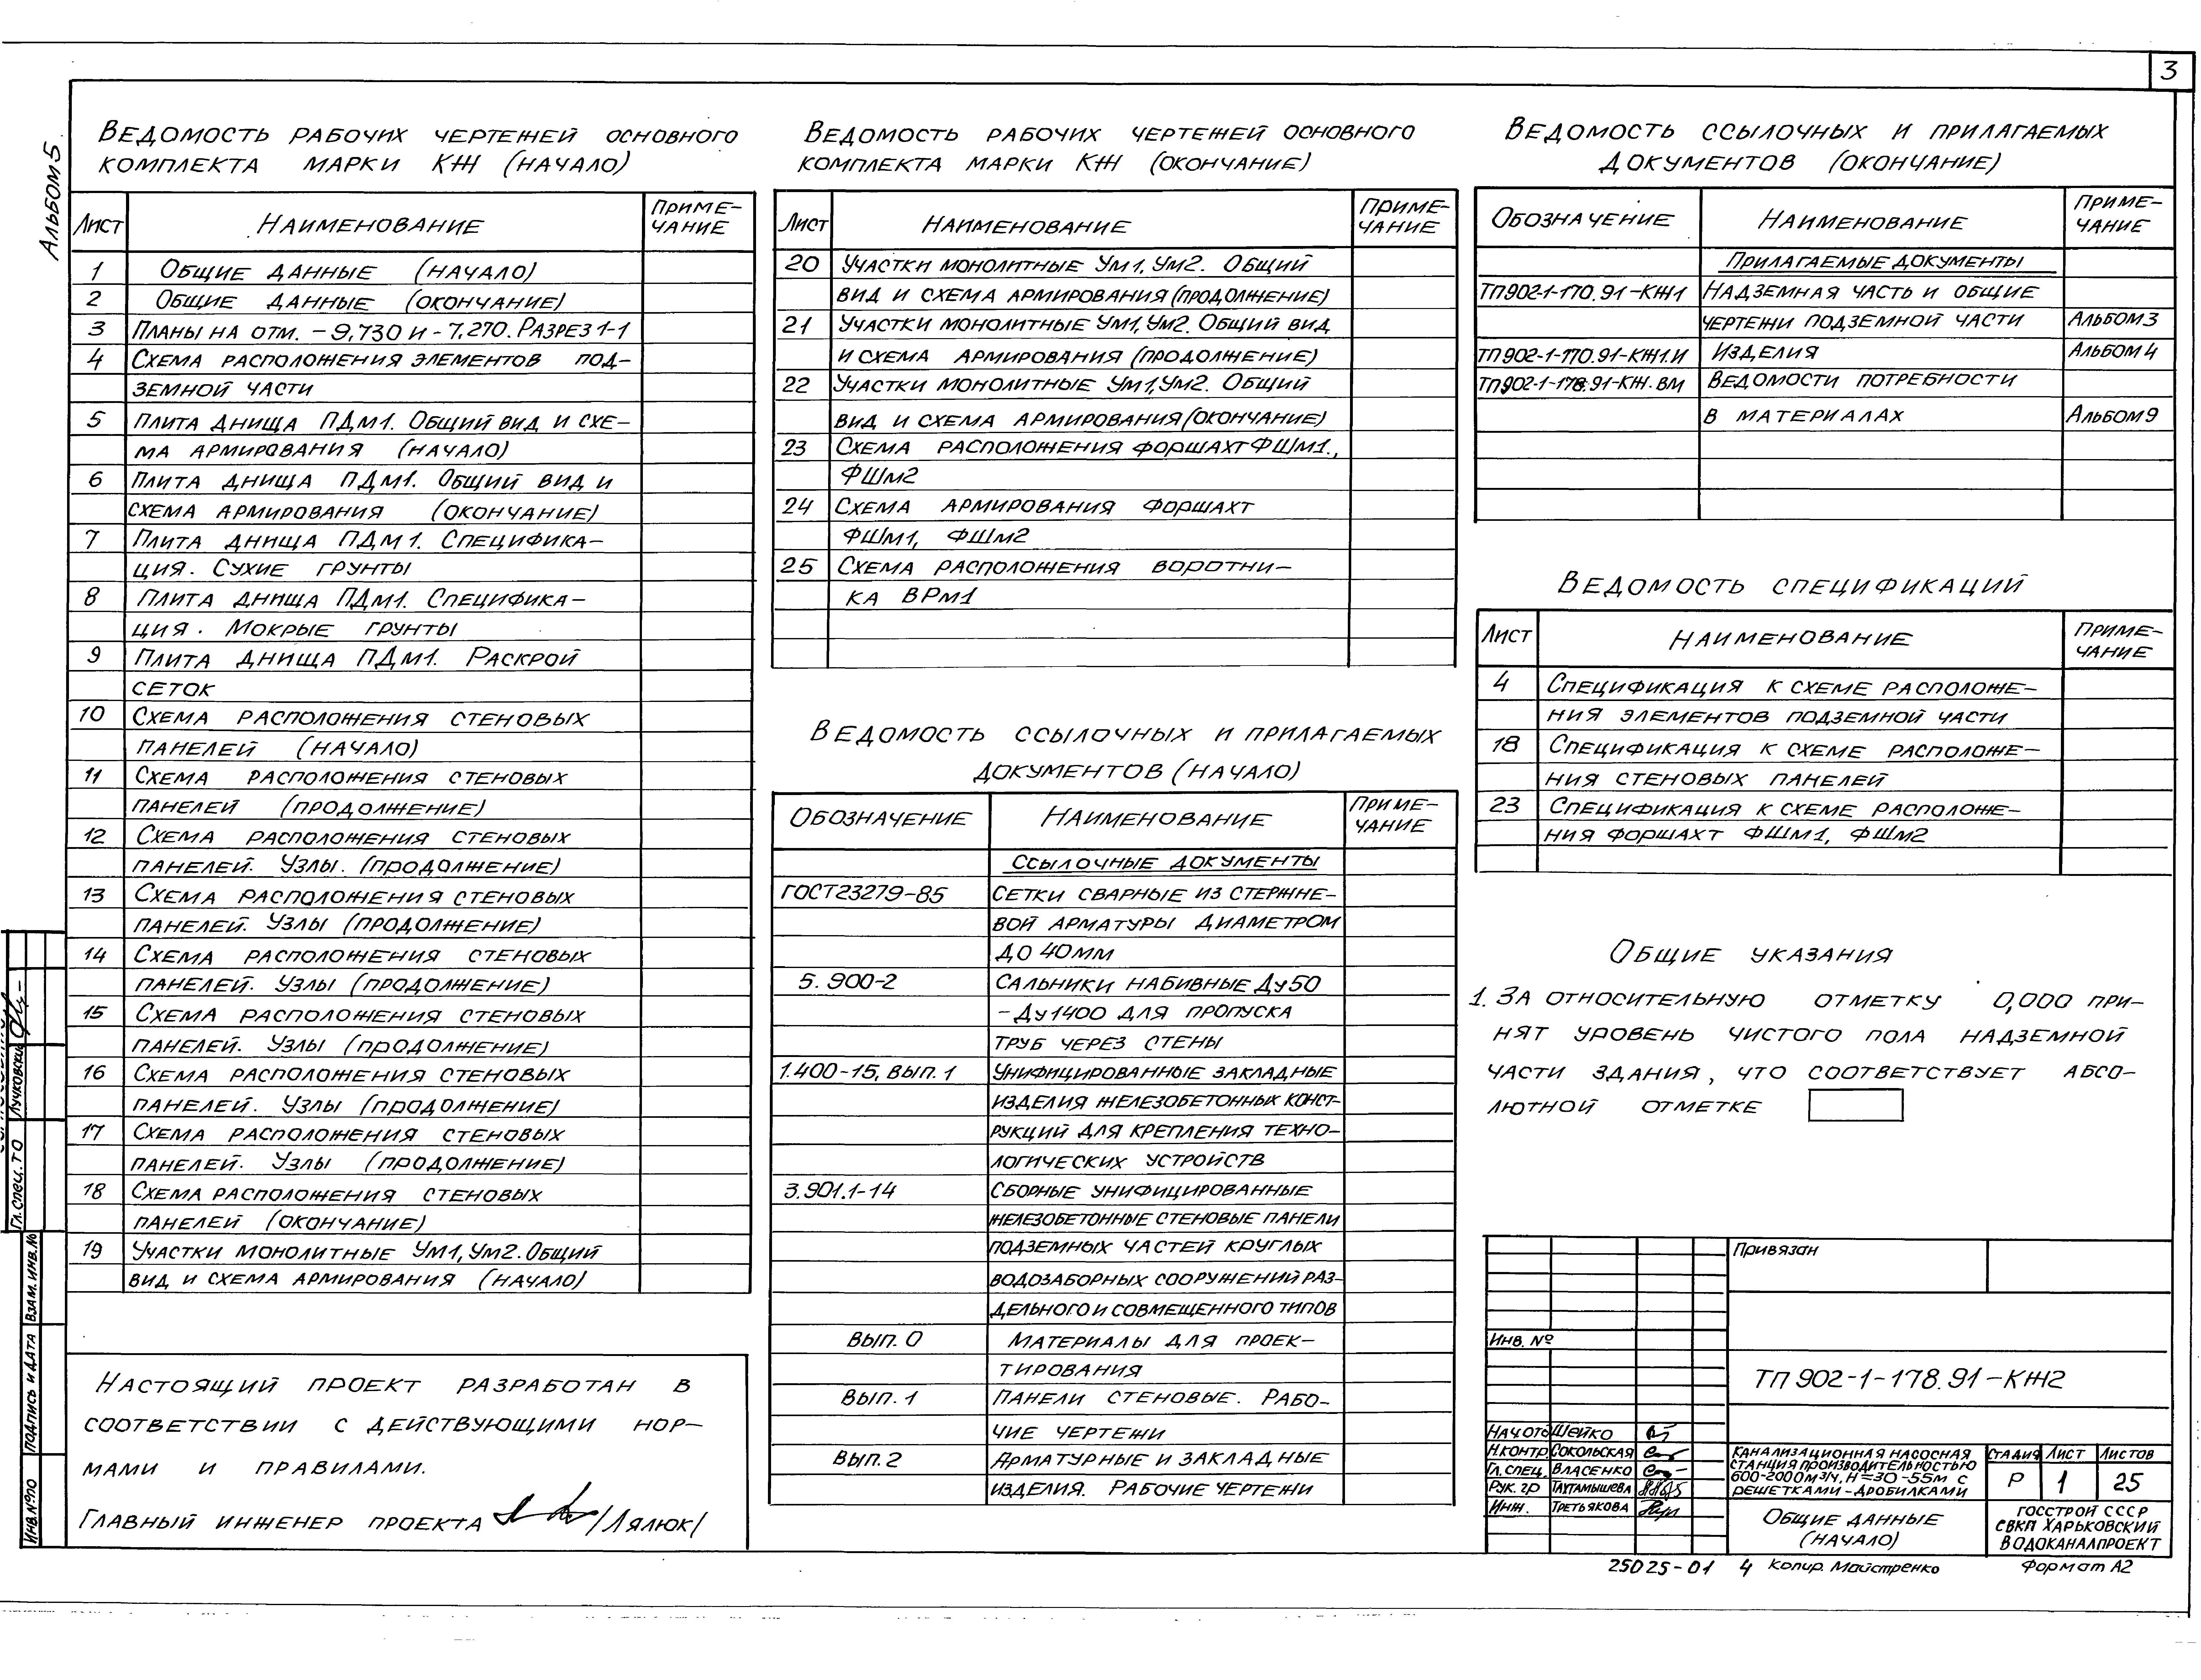 3
Альбом 5
Ведомость рабочих чертежей основного
комплекта марки КЖ (начало)
Лист Наименование Приме-
чание
1 Общие данные (начало)
2 Общие данные (окончание)
3 Планы на отм. -9,730 и -7,270. Разрез 1-1
4 Схема расположения элементов под-
земной части
5 Плита днища ПДм1. Общий вид и схе-
ма армирования (начало)
6 Плита днища ПДм1. Общий вид и
схема армирования (окончание)
7 Плита днища ПДм1. Специфика-
ция. Сухие грунты
8 Плита днища ПДм1. Специфика-
ция. Мокрые грунты
9 Плита днища ПДм1. Раскрой
сеток
10 Схема расположения стеновых
панелей (начало)
11 Схема расположения стеновых
панелей (продолжение)
12 Схема расположения стеновых
панелей. Узлы. (продолжение)
13 Схема расположения стеновых
панелей. Узлы (продолжение)
14 Схема расположения стеновых
панелей. Узлы (продолжение)
15 Схема расположения стеновых
панелей. Узлы (продолжение)
16 Схема расположения стеновых
панелей. Узлы (продолжение)
17 Схема расположения стеновых
панелей. Узлы (продолжение)
18 Схема расположения стеновых
панелей (окончание)
19 Участки монолитные Ум1, Ум2. Общий
вид и схема армирования (начало)
Настоящий проект разработан в
соответствии с действующими нор-
мами и правилами.
Главный инженер проекта /Лялюк/
Ведомость рабочих чертежей основного
комплекта марки КЖ (окончание)
Лист Наименование Приме-
чание
20 Участки монолитные Ум1, Ум2. Общий
вид и схема армирования (продолжение)
21 Участки монолитные Ум1, Ум2. Общий вид
и схема армирования (продолжение)
22 Участки монолитные Ум1, Ум2. Общий
вид и схема армирования (окончание)
23 Схема расположения форшахт ФШм1.,
ФШм2
24 Схема армирования форшахт
ФШм1, ФШм2
25 Схема расположения воротни-
ка ВРм1
Ведомость ссылочных и прилагаемых
документов (начало)
Обозначение Наименование Приме-
чание
Ссылочные документы
ГОСТ 23279-85 Сетки сварные из стержне-
вой арматуры диаметром
до 40мм
5.900-2 Сальники набивные Ду50
-Ду1400 для пропуска
труб через стены
1.400-15, вып. 1 Унифицированные закладные
изделия железобетонных конст-
рукций для крепления техно-
логических устройств
3.901.1-14 Сборные унифицированные
железобетонные стеновые панели
подземных частей круглых
водозаборных сооружений раз-
дельного и совмещенного типов
Вып. 0 Материалы для проек-
тирования
Вып. 1 Панели стеновые. Рабо-
чие чертежи
Вып. 2 Арматурные и закладные
изделия. Рабочие чертежи
Ведомость ссылочных и прилагаемых
документов (окончание)
Обозначение Наименование Приме-
чание
Прилагаемые документы
ТП902-1-170.91-КЖ1 Надземная часть и общие
чертежи подземной части Альбом 3
ТП902-1-170.91-КЖ1.И Изделия Альбом 4
ТП902-1-178.91-КЖ.ВМ Ведомости потребности
в материалах Альбом 9
Ведомость спецификаций
Лист Наименование Приме-
чание
4 Спецификация к схеме расположе-
ния элементов подземной части
18 Спецификация к схеме расположе-
ния стеновых панелей
23 Спецификация к схеме расположе-
ния форшахт ФШм1, ФШм2
Общие указания
1. За относительную отметку 0,000 при-
нят уровень чистого пола надземной
части здания, что соответствует абсо-
лютной отметке
Привязан
Инв. №
ТП 902-1-178.91-КЖ2
Нач.отд Шейко
Н.контр. Сокольская
Гл. спец. Власенко
Рук. гр Тахтамышева
Инж. Третьякова
Канализационная насосная
станция производительностью
600-2000м³/ч, Н=30-55м с
решетками-дробилками
Стадия Лист Листов
Р 1 25
Общие данные
(начало)
Госстрой СССР
СВКП Харьковский
Водоканалпроект
25025-01 4 Копир. Майстренко Формат А2
Гл. спец. ТО Лучковский
Взам. инв. №
Подпись и дата
Инв. № по